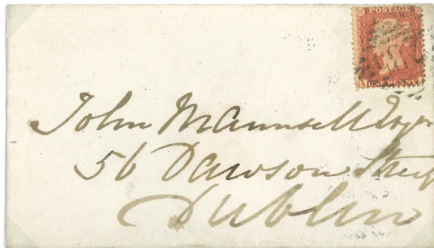 POSTAGE
ONE PENNY
John Maunsell Esqr
56 Dawson Street
Dublin